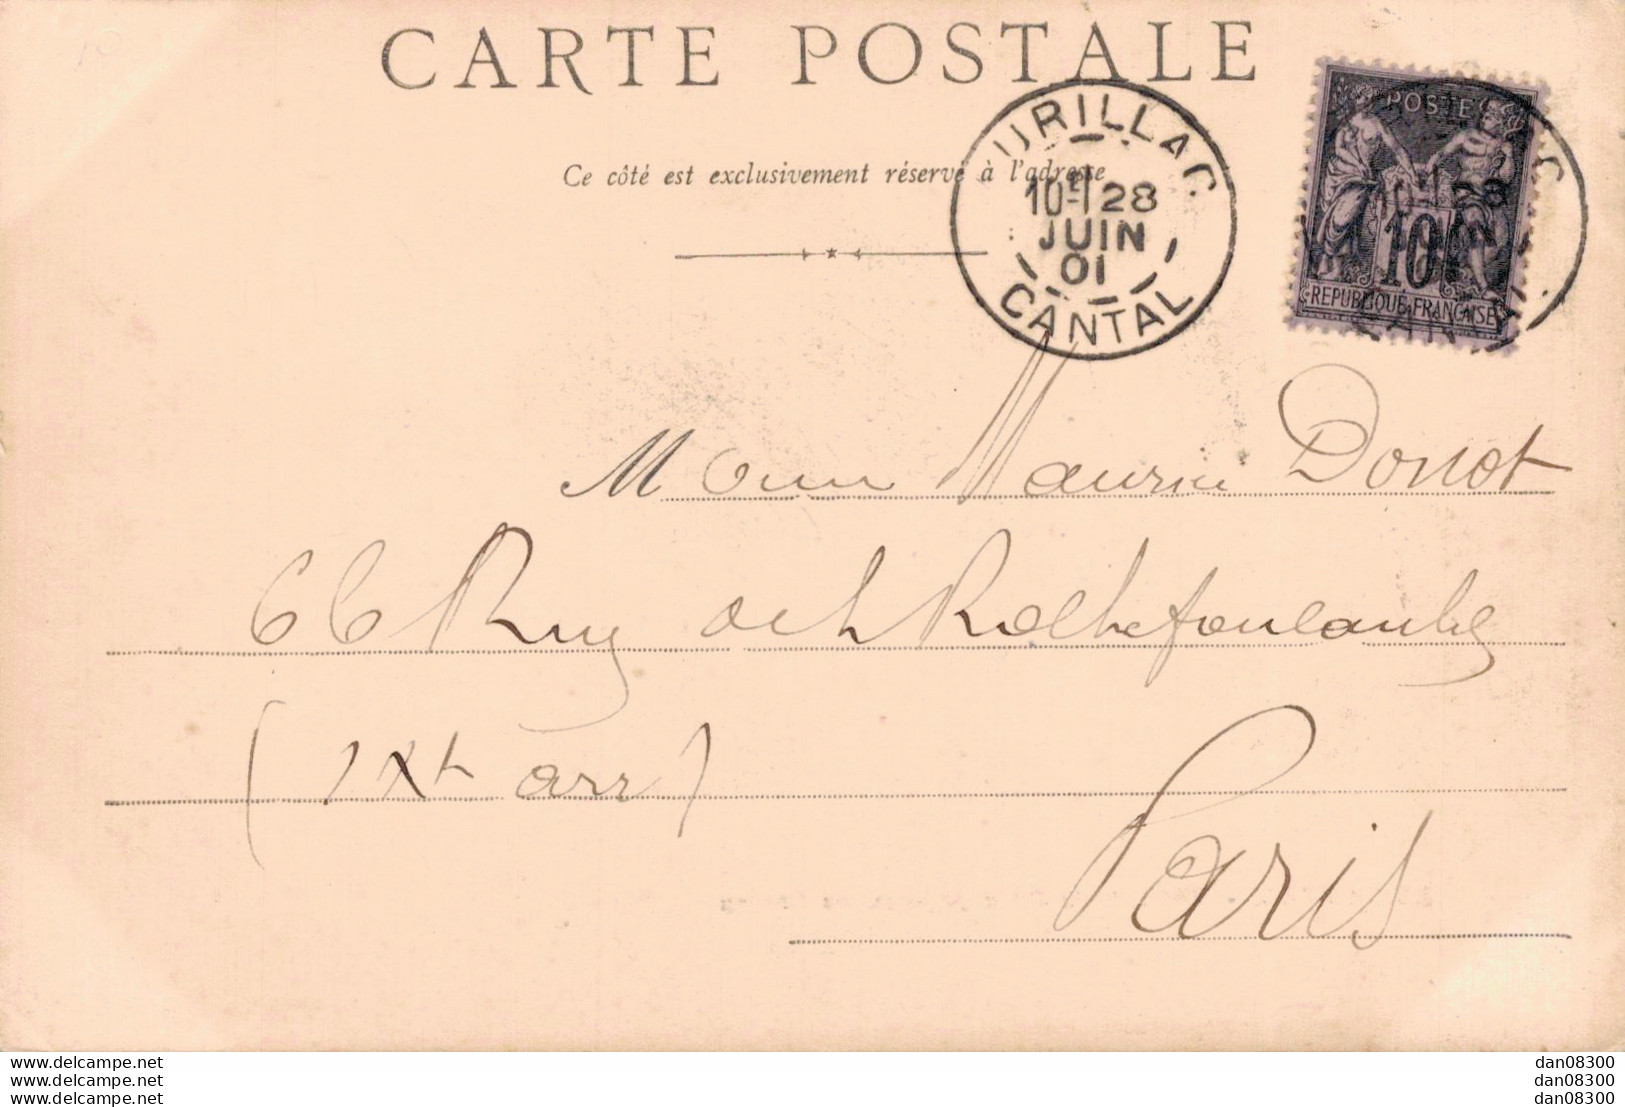 CARTE POSTALE
Ce côté est exclusivement réservé à l'adresse
URILLAC
10-E 28
JUIN
01
CANTAL
POSTE
10
REPUBLIQUE FRANÇAISE
Maurice Donot
66 Rue de la Rochefoucauld
(IXe arr)
Paris
delcampe.net
delcampe.net
delcampe.net
dan08300
dan08300
dan08300